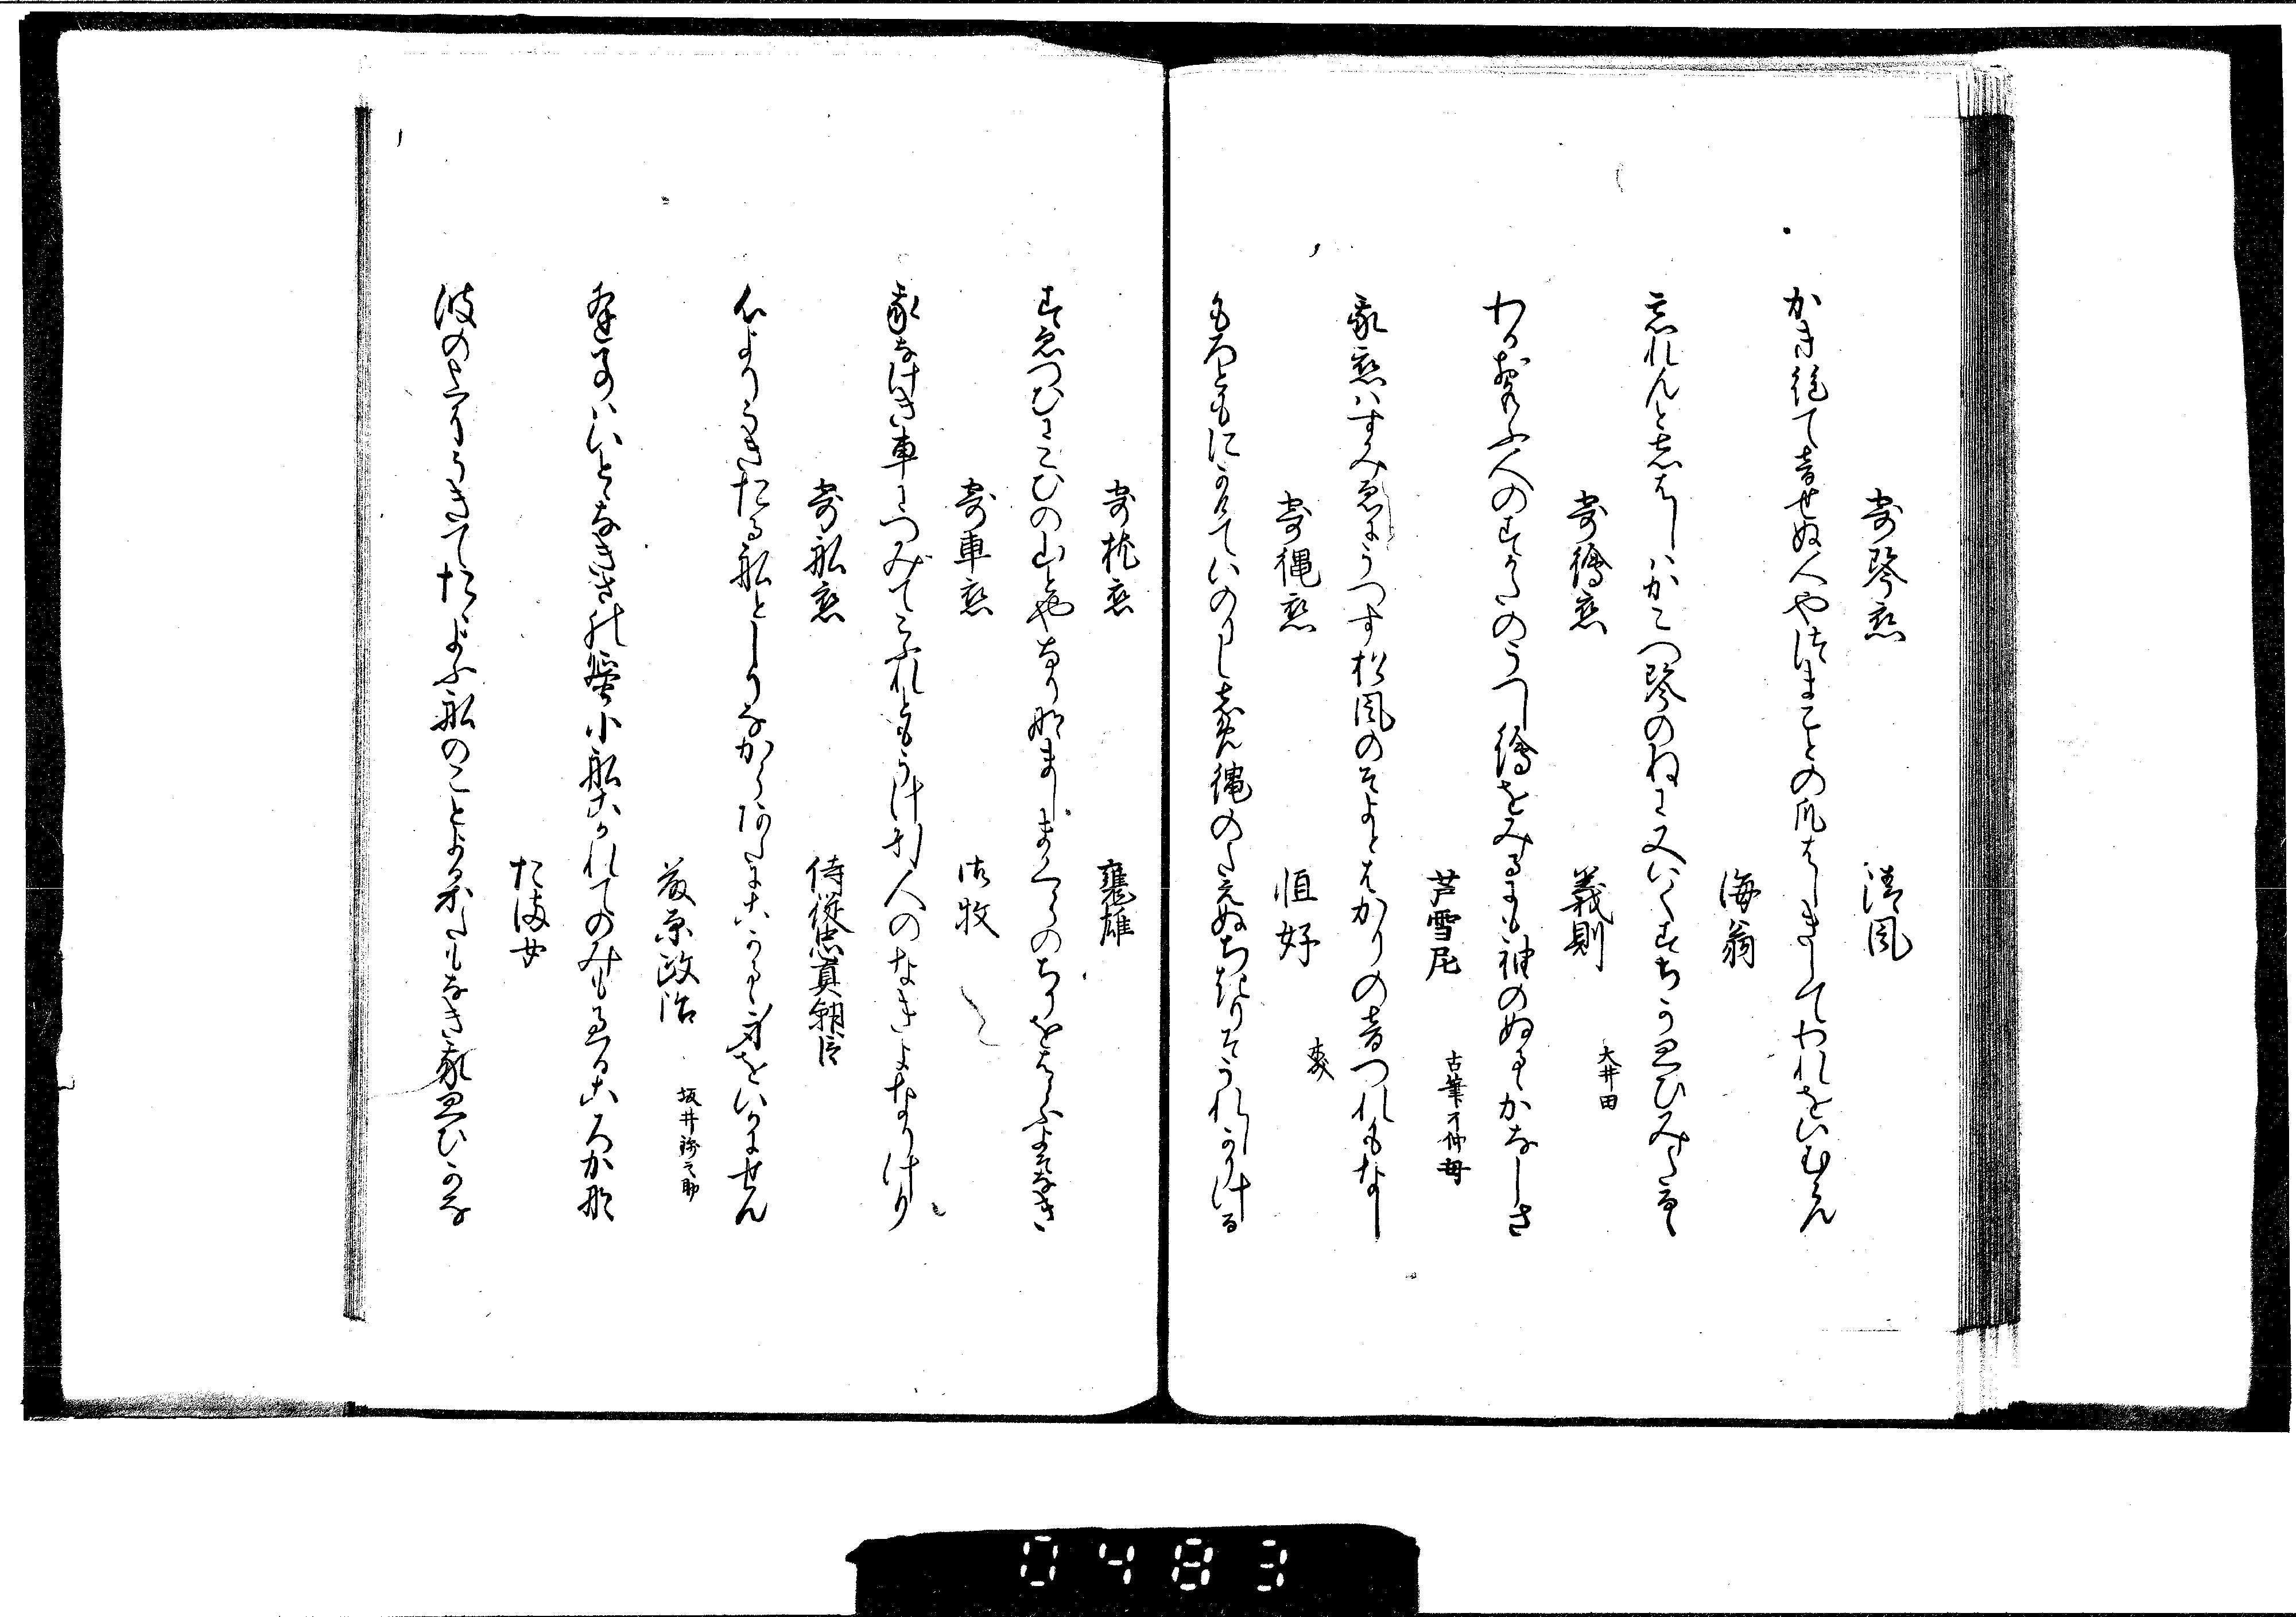 寄琴恋　清風
かき絶て音せぬ人やつまことの爪はしきしてわれをいむらん
海翁
忘れんとしはしハかこつ琴のねに又いくすちの思ひみたるゝ
寄絵恋　義則　大井田
わか思ふ人のすかたのうつし絵をみるにも袖のぬるゝかなしさ
芦雪尼　古筆了仲母
我恋ハすみゑにうつす松風のそよとはかりの音つれもなし
寄縄恋　恒好　森
もろともにかけていのりししめ縄のたえぬちきりそうれしかりける
寄枕恋　甕雄
すゑつひにこひの山とやなりなましまくらのちりをはらふよそなき
寄車恋　沽牧
我なけき車につみてこふれともうけ引人のなきよなりけり
寄船恋　侍従忠真朝臣
心よりうきたる船としりなからあたにこかるゝ身をいかにせん
藤原政治　坂井孫之助
逢事ハいとなきさの蜑小船こかれてのみもよるこゝろかな
たま女
波のよりうきてたゝよふ船のことよるかたもなき我思ひかな
0483